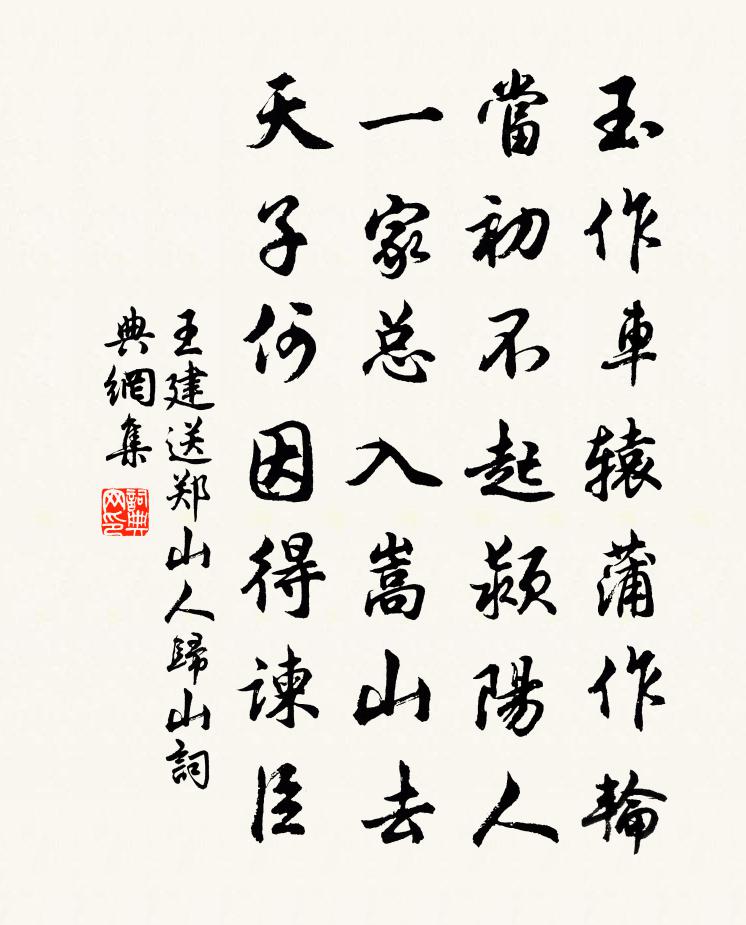 玉作車辕蒲作輪
當初不起颍陽人
一家总入嵩山去
天子何因得諫臣
王建送郑山人歸山詞
典網集
詞典网印